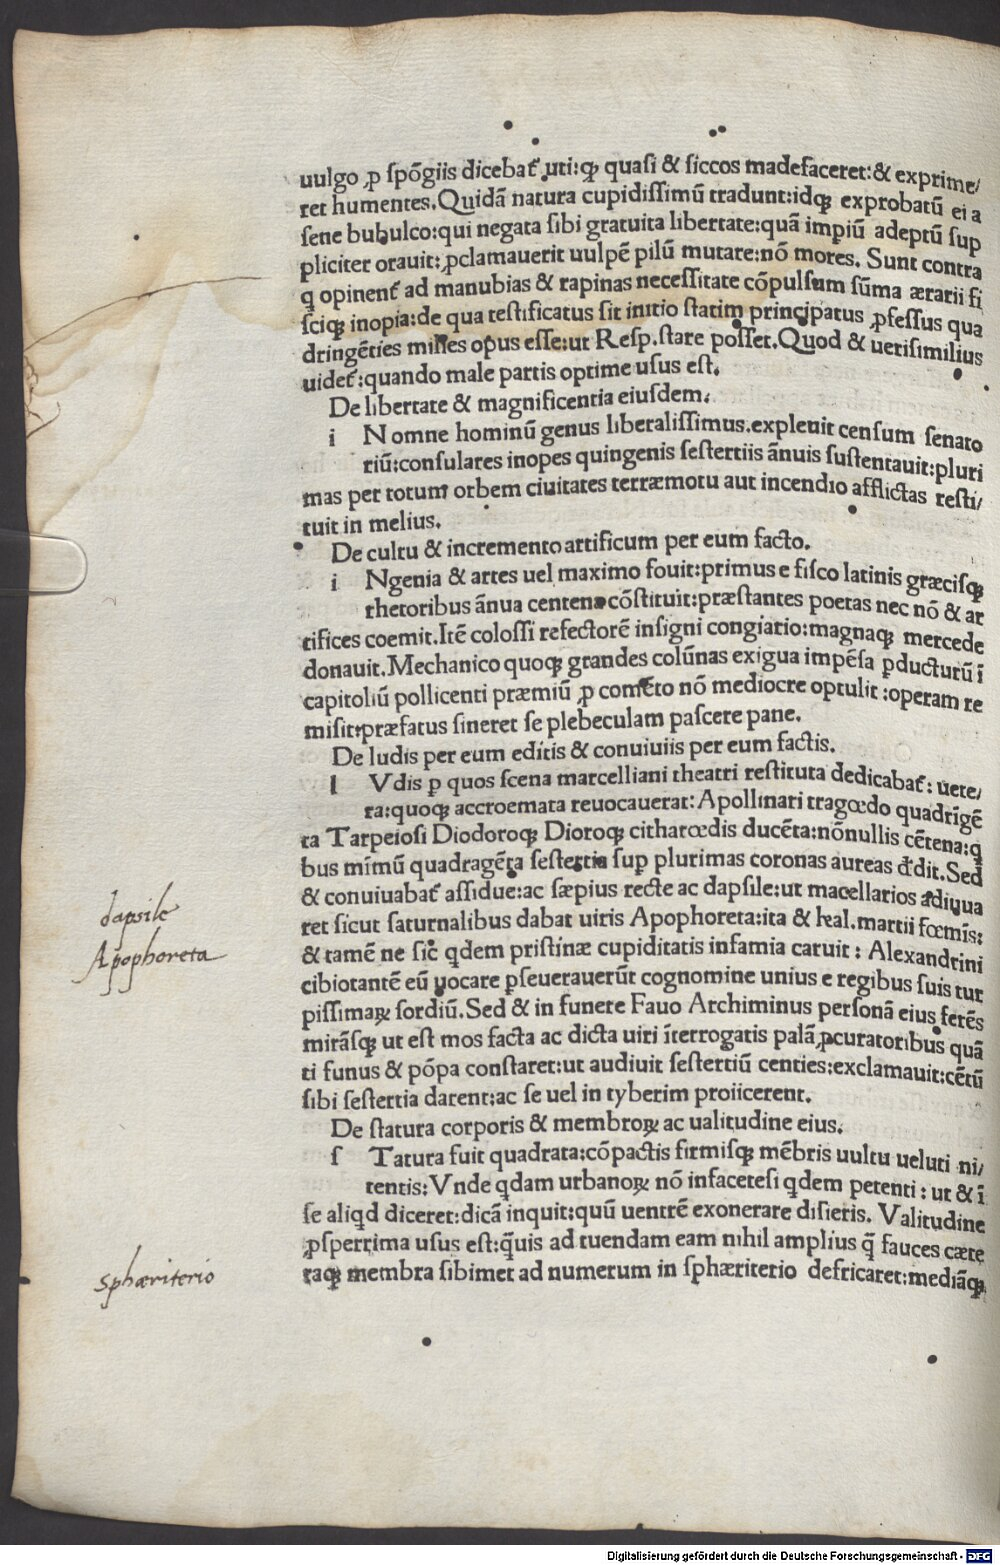 uulgo ꝓ spõgiis dicebat᷑ uti: qꝫ quasi & siccos madefaceret: & exprime/
ret humentes. Quidã natura cupidissimũ tradunt: idqꝫ exprobatũ ei a
sene bubulco: qui negata sibi gratuita libertate: quã impiũ adeptũ sup
pliciter orauit: ꝓclamauerit uulpẽ pilũ mutare: nõ mores. Sunt contra
q opinent᷑ ad manubias & rapinas necessitate cõpulsum sũma ærarii fi
sciqꝫ inopia: de qua testificatus sit initio statim principatus ꝓfessus qua
dringẽties milies opus esse: ut Resp. stare posset. Quod & uerisimilius
uidet᷑: quando male partis optime usus est.
De libertate & magnificentia eiusdem.
i N omne hominũ genus liberalissimus. expleuit censum senato
riũ: consulares inopes quingenis sestertiis ãnuis sustentauit: pluri
mas per totum orbem ciuitates terræmotu aut incendio afflictas resti/
tuit in melius.
De cultu & incremento artificum per eum facto.
i Ngenia & artes uel maximo fouit: primus e fisco latinis græcisqꝫ
rhetoribus ãnua centena cõstituit: præstantes poetas nec nõ & ar
tifices coemit. Itẽ colossi refectorẽ insigni congiario: magnaqꝫ mercede
donauit. Mechanico quoqꝫ grandes colũnas exigua impẽsa ꝑducturũ ĩ
capitoliũ pollicenti præmiũ ꝓ comẽto nõ mediocre optulit: operam re
misit: præfatus sineret se plebeculam pascere pane.
De ludis per eum editis & conuiuiis per eum factis.
l Vdis ꝑ quos scena marcelliani theatri restituta dedicabat᷑: uete/
ra: quoqꝫ accroemata reuocauerat: Apollinari tragœdo quadrĩgẽ
ta Tarpeiosi Diodoroqꝫ Dioroqꝫ citharœdis ducẽta: nõnullis cẽtena: q
bus mimũ quadragẽta sestertia sup plurimas coronas aureas dẽdit. Sed
& conuiuabat᷑ assidue: ac sæpius recte ac dapsile: ut macellarios adiuua
ret sicut saturnalibus dabat uiris Apophoreta: ita & kal. martii fœmĩs:
& tamẽ ne sic qdem pristinæ cupiditatis infamia caruit: Alexandrini
cibiotantẽ eũ uocare ꝑseuerauerũt cognomine unius e regibus suis tur
pissimaꝝ sordiũ. Sed & in funere Fauo Archiminus personã eius ferẽs
mirãsqꝫ ut est mos facta ac dicta uiri ĩterrogatis palã ꝓcuratoribus quã
ti funus & põpa constaret: ut audiuit sestertiũ centies: exclamauit: cẽtũ
sibi sestertia darent: ac se uel in tyberim proiicerent.
De statura corporis & membroꝝ ac ualitudine eius.
s Tatura fuit quadrata: cõpactis firmisqꝫ mẽbris uultu ueluti ni/
tentis: Vnde qdam urbanoꝝ nõ infacetesi qdem petenti: ut & ĩ
se aliqd diceret: dicã inquit: quũ uentrẽ exonerare disieris. Valitudine
ꝓsperrima usus est: q̃uis ad tuendam eam nihil amplius q̃ fauces cæte
raqꝫ membra sibimet ad numerum in sphæriterio defricaret: mediãqꝫ
dapsile
Apophoreta
Sphæriterio
Digitalisierung gefördert durch die Deutsche Forschungsgemeinschaft - DFG